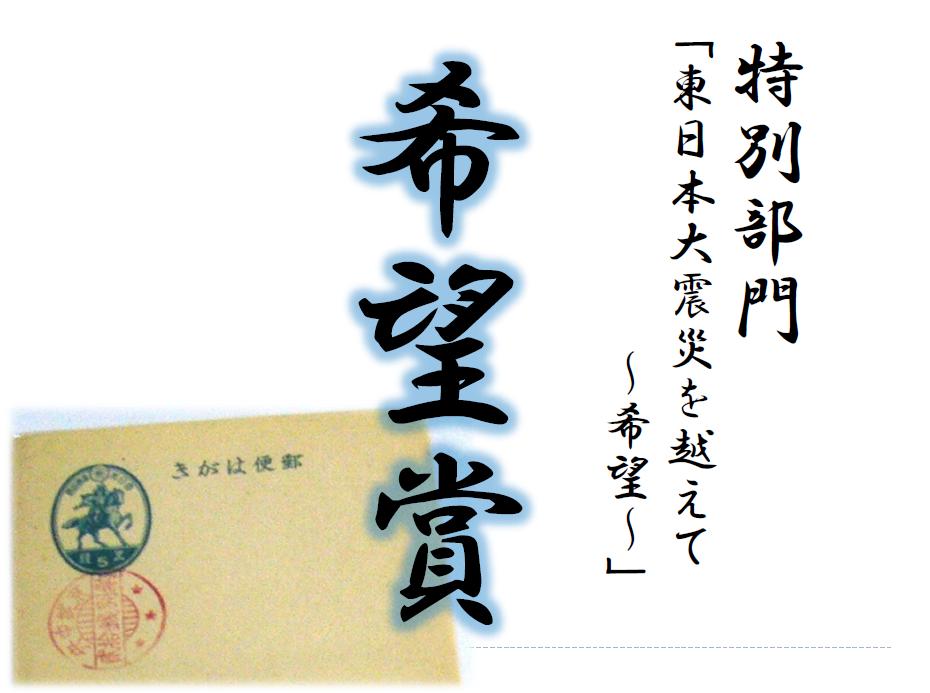 特別部門
「東日本大震災を越えて
～希望～」
希望賞
きがは便郵
5